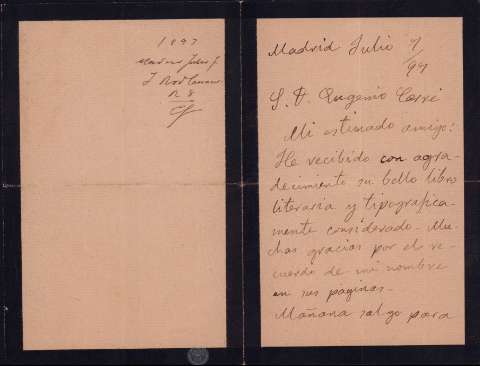 1897
Madrid Julio 7
J Rod
R 8
Madrid Julio 7/97
S. D. Eugenio Carré
Mi estimado amigo:
He recibido con agra-
decimiento su bello libro
literaria y tipografica-
mente considerado - Mu-
chas gracias por el re-
cuerdo de mi nombre
en sus páginas -
Mañana salgo para